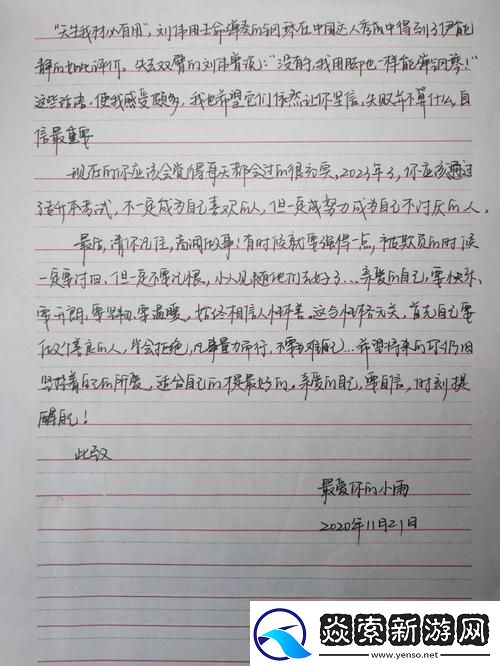 “天生我材必有用”，刘伟用生命弹奏的钢琴在中国达人秀成中得到了伊能
静的如此评价。失去双臂的刘伟曾说：“没有手，我用脚也一样能弹钢琴！”
这些话语，使我感受颇多，我也希望它们依然让你坚信，失败并不算什么，自
信最重要
现在的你应该会觉得每天都会过的很充实，2023年了，你应该通过
专升本考试，不一定成为自己喜欢的人，但一定成努力成为自己不讨厌的人。
最后，请你记住，高调做事！有时候就要强得一点，被欺负的时候
一定要讨回，但一定不要记恨，小人见随他们去好了…亲爱的自己，要快乐、
要开朗、要坚韧、要温暖，始终相信人性本善。这与性格无关，首先自己要
做个善良的人，学会拒绝，凡事量力而行，不要为难自己…希望将来的你仍旧
坚持着自己的所爱，适合自己的按最好的。亲爱的自己，要自信，时刻提
醒自己！
此致
最爱你的小雨
2020年11月21日
焱索新游网
www.yenso.net